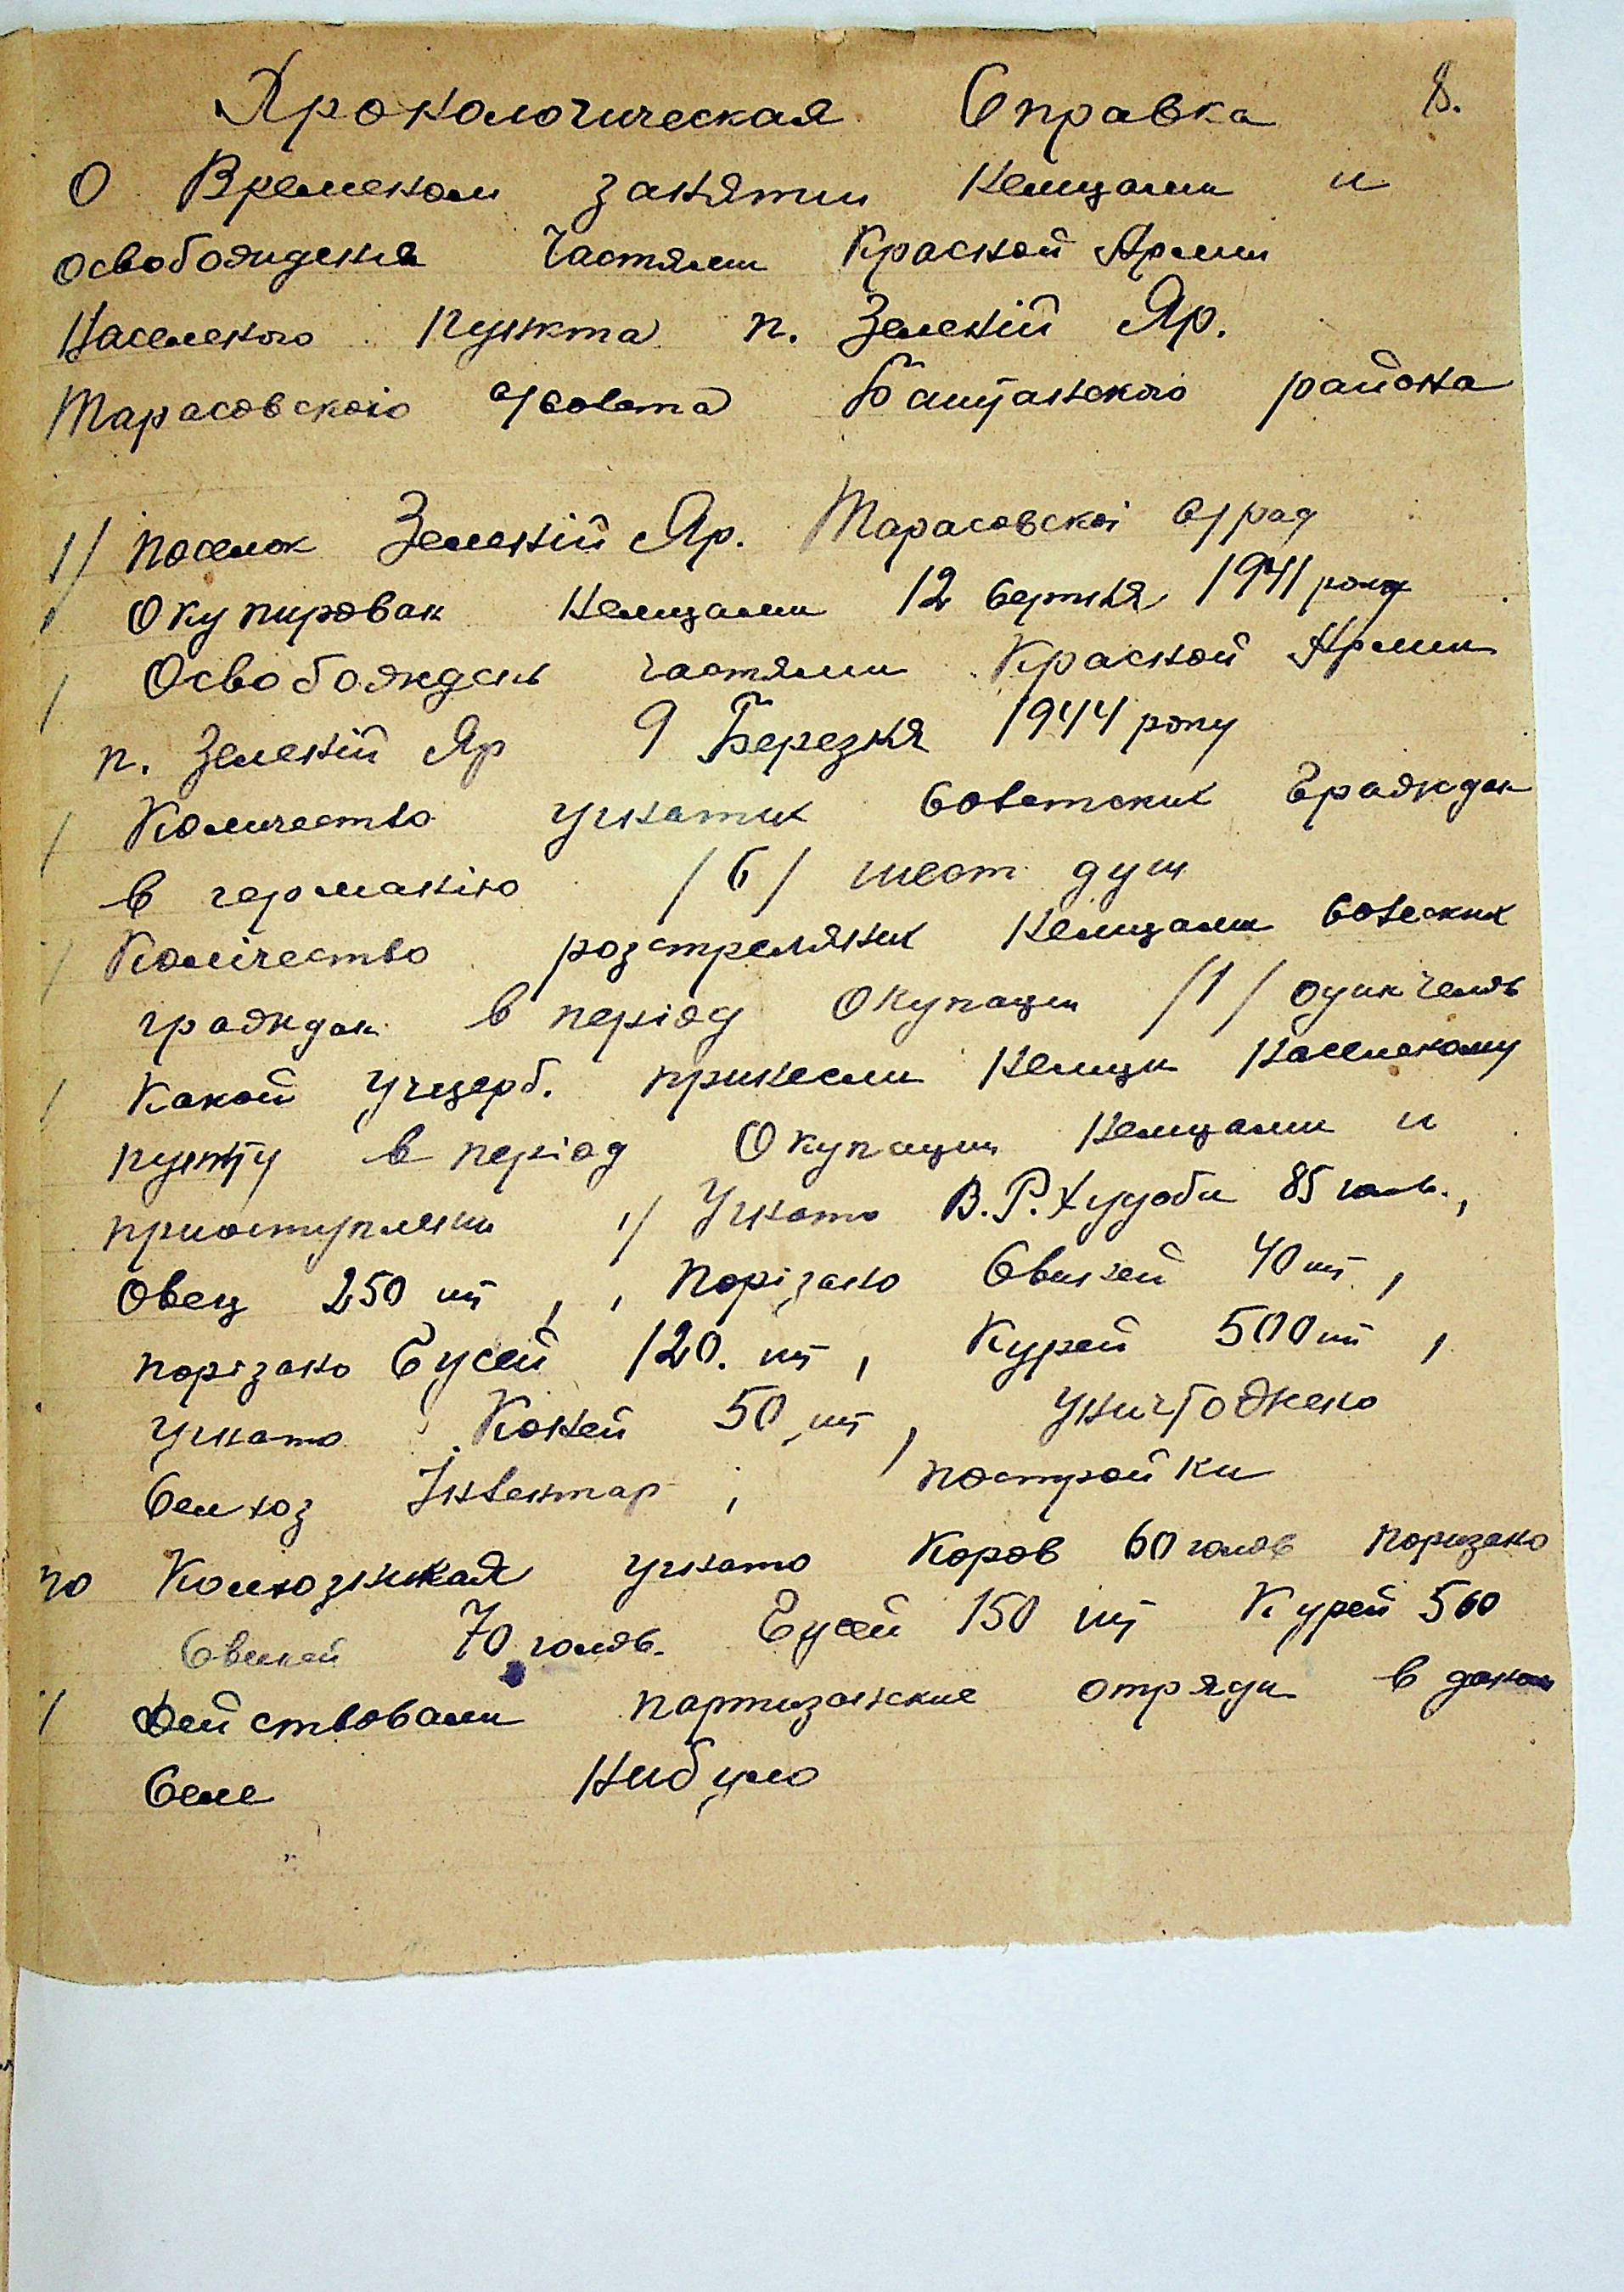 Хронологическая Справка 8.
О Временом занятии немцами и
освобождения Частями Красной Армии
Населеного пункта п. Зеленій Яр.
Тарасовского с/совета Баштанского района
1/ поселок Зеленій Яр. Тарасовскоі с/рад
Окупирован немцами 12 серпня 1941 року
/ Освобождень частями Красной Армии
п. Зеленій Яр 9 Березня 1944 року
/ Количество угнатих Советских Граждан
в германію /6/ шест душ
/ Колічество розстреляних немцами Совеских
граждан в період Окупации /1/ один человь
/ Какой Ущерб. принесли немци населеному
пункту в період Окупации немцами и
приотступлении 1/ Угнато В.Р.Худоби 85 голв.,
Овец 250 шт , , порізано Свиней 40 шт ,
порізано Гусей 120. шт , Курей 500 шт ,
Угнато Коней 50 шт , Уничтоджено
Селхоз Інвентар , постройки
по Колхозникая угнато Коров 60 голов поризано
Свиней 70 голов. Гусей 150 шт Курей 560
/ Действовали партизанские отряди в даном
Селе Нибуло